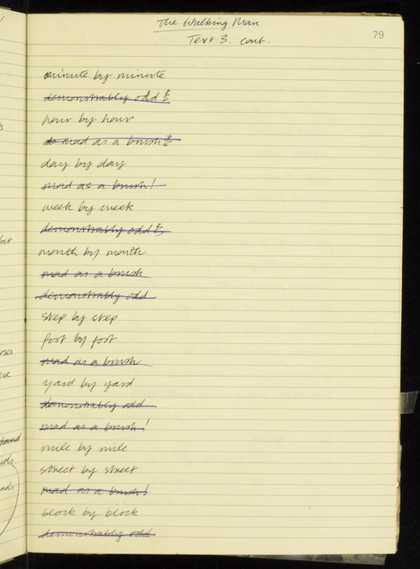 The Walking Man
Text 3. cont.
79
minute by minute
demonstrably odd &
hour by hour
mad as a brush &
day by day
mad as a brush!
week by week
demonstrably odd &
month by month
mad as a brush
demonstrably odd
step by step
foot by foot
mad as a brush
yard by yard
demonstrably odd
mad as a brush!
mile by mile
street by street
mad as a brush!
block by block
demonstrably odd